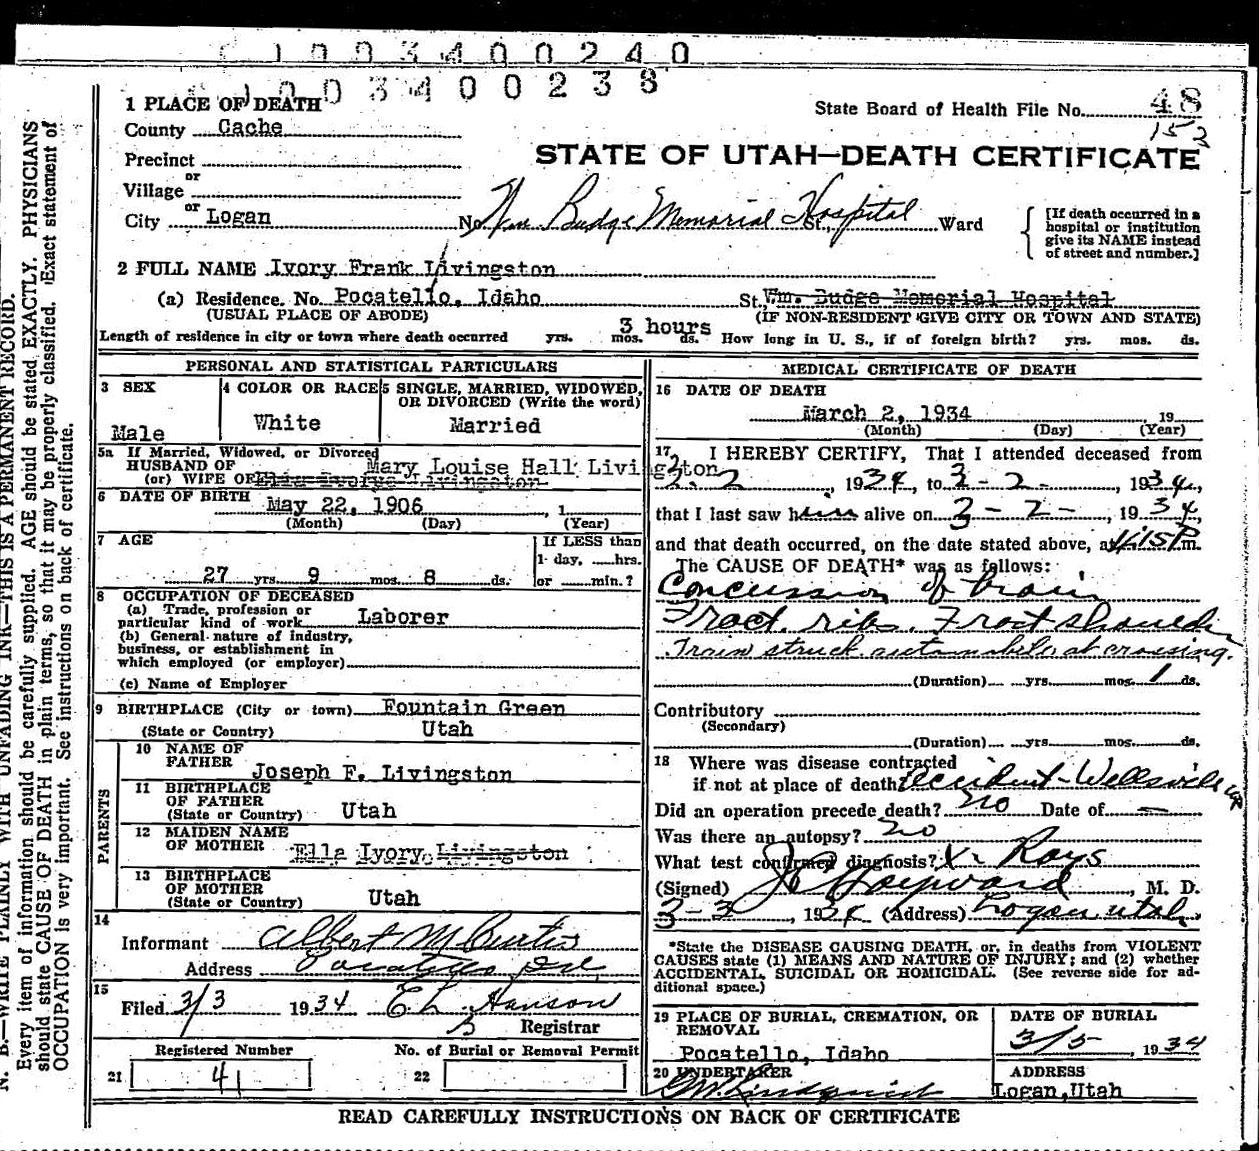 1 0 0 3 4 0 0 2 4 0
1 0 0 3 4 0 0 2 3 8
State Board of Health File No. 48
152
1 PLACE OF DEATH
County Cache
Precinct
or
Village
or
City Logan No. Wm Budge Memorial Hospital St., Ward
STATE OF UTAH—DEATH CERTIFICATE
[If death occurred in a
hospital or institution
give its NAME instead
of street and number.]
2 FULL NAME Ivory Frank Livingston
(a) Residence. No. Pocatello, Idaho St. Wm. Budge Memorial Hospital
(USUAL PLACE OF ABODE) (IF NON-RESIDENT GIVE CITY OR TOWN AND STATE)
Length of residence in city or town where death occurred yrs. mos. 3 hours ds. How long in U. S., if of foreign birth? yrs. mos. ds.
PERSONAL AND STATISTICAL PARTICULARS
3 SEX
Male
4 COLOR OR RACE
White
5 SINGLE, MARRIED, WIDOWED,
OR DIVORCED (Write the word)
Married
5a If Married, Widowed, or Divorced
HUSBAND OF Mary Louise Hall Livingston
(or) WIFE OF
6 DATE OF BIRTH May 22, 1906, 1
(Month) (Day) (Year)
7 AGE
27 yrs. 9 mos. 8 ds.
If LESS than
1 day, hrs.
or min.?
8 OCCUPATION OF DECEASED
(a) Trade, profession or
particular kind of work Laborer
(b) General nature of industry,
business, or establishment in
which employed (or employer)
(c) Name of Employer
9 BIRTHPLACE (City or town) Fountain Green
(State or Country) Utah
PARENTS
10 NAME OF
FATHER Joseph F. Livingston
11 BIRTHPLACE
OF FATHER
(State or Country) Utah
12 MAIDEN NAME
OF MOTHER Ella Ivory Livingston
13 BIRTHPLACE
OF MOTHER
(State or Country) Utah
14
Informant Albert M Curtis
Address Pocatello Ida
15
Filed 3/3 1934 E. L. Hanson
Registrar
Registered Number
21 41
No. of Burial or Removal Permit
22
MEDICAL CERTIFICATE OF DEATH
16 DATE OF DEATH
March 2, 1934 19
(Month) (Day) (Year)
17 I HEREBY CERTIFY, That I attended deceased from
3-2, 1934, to 3-2-, 1934,
that I last saw him alive on 3-2-, 1934,
and that death occurred, on the date stated above, at 4:15 P m.
The CAUSE OF DEATH* was as follows:
Concussion of brain
Fract. ribs. Fract shoulder
Train struck automobile at crossing.
(Duration) yrs. mos. 1 ds.
Contributory
(Secondary)
(Duration) yrs. mos. ds.
18 Where was disease contracted
if not at place of death? Accident - Wellsville
Did an operation precede death? no Date of —
Was there an autopsy? no
What test confirmed diagnosis? X-Rays
(Signed) Hayward, M. D.
3-3, 1934 (Address) Logan, Utah
*State the DISEASE CAUSING DEATH, or, in deaths from VIOLENT
CAUSES state (1) MEANS AND NATURE OF INJURY; and (2) whether
ACCIDENTAL, SUICIDAL OR HOMICIDAL. (See reverse side for ad-
ditional space.)
19 PLACE OF BURIAL, CREMATION, OR
REMOVAL
Pocatello, Idaho
DATE OF BURIAL
3/5, 1934
20 UNDERTAKER
Lindquist
ADDRESS
Logan, Utah
READ CAREFULLY INSTRUCTIONS ON BACK OF CERTIFICATE
N. B.—WRITE PLAINLY WITH UNFADING INK—THIS IS A PERMANENT RECORD.
Every item of information should be carefully supplied. AGE should be stated EXACTLY. PHYSICIANS
should state CAUSE OF DEATH in plain terms, so that it may be properly classified. Exact statement of
OCCUPATION is very important. See instructions on back of certificate.